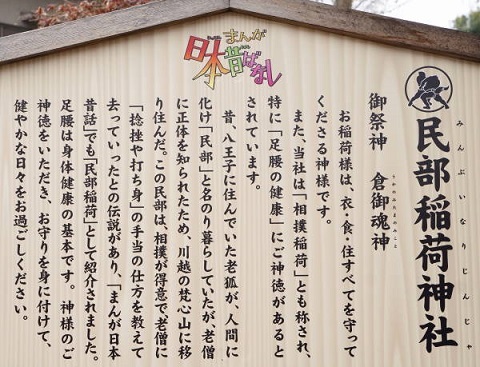 まんが
日本昔ばなし
みんぶいなりじんじゃ
民部稲荷神社
うかのみたまのみこと
御祭神　倉御魂神
お稲荷様は、衣・食・住すべてを守って
くださる神様です。
また、当社は「相撲稲荷」とも称され、
特に「足腰の健康」にご神徳があると
されています。
昔、八王子に住んでいた老狐が、人間に
化け「民部」と名のり暮らしていたが、老僧
に正体を知られたため、川越の梵心山に移
り住んだ。この民部は、相撲が得意で老僧に
「捻挫や打ち身」の手当の仕方を教えて
去っていったとの伝説があり、「まんが日本
昔話」でも「民部稲荷」として紹介されました。
足腰は身体健康の基本です。神様のご
神徳をいただき、お守りを身に付けて、
健やかな日々をお過ごしください。